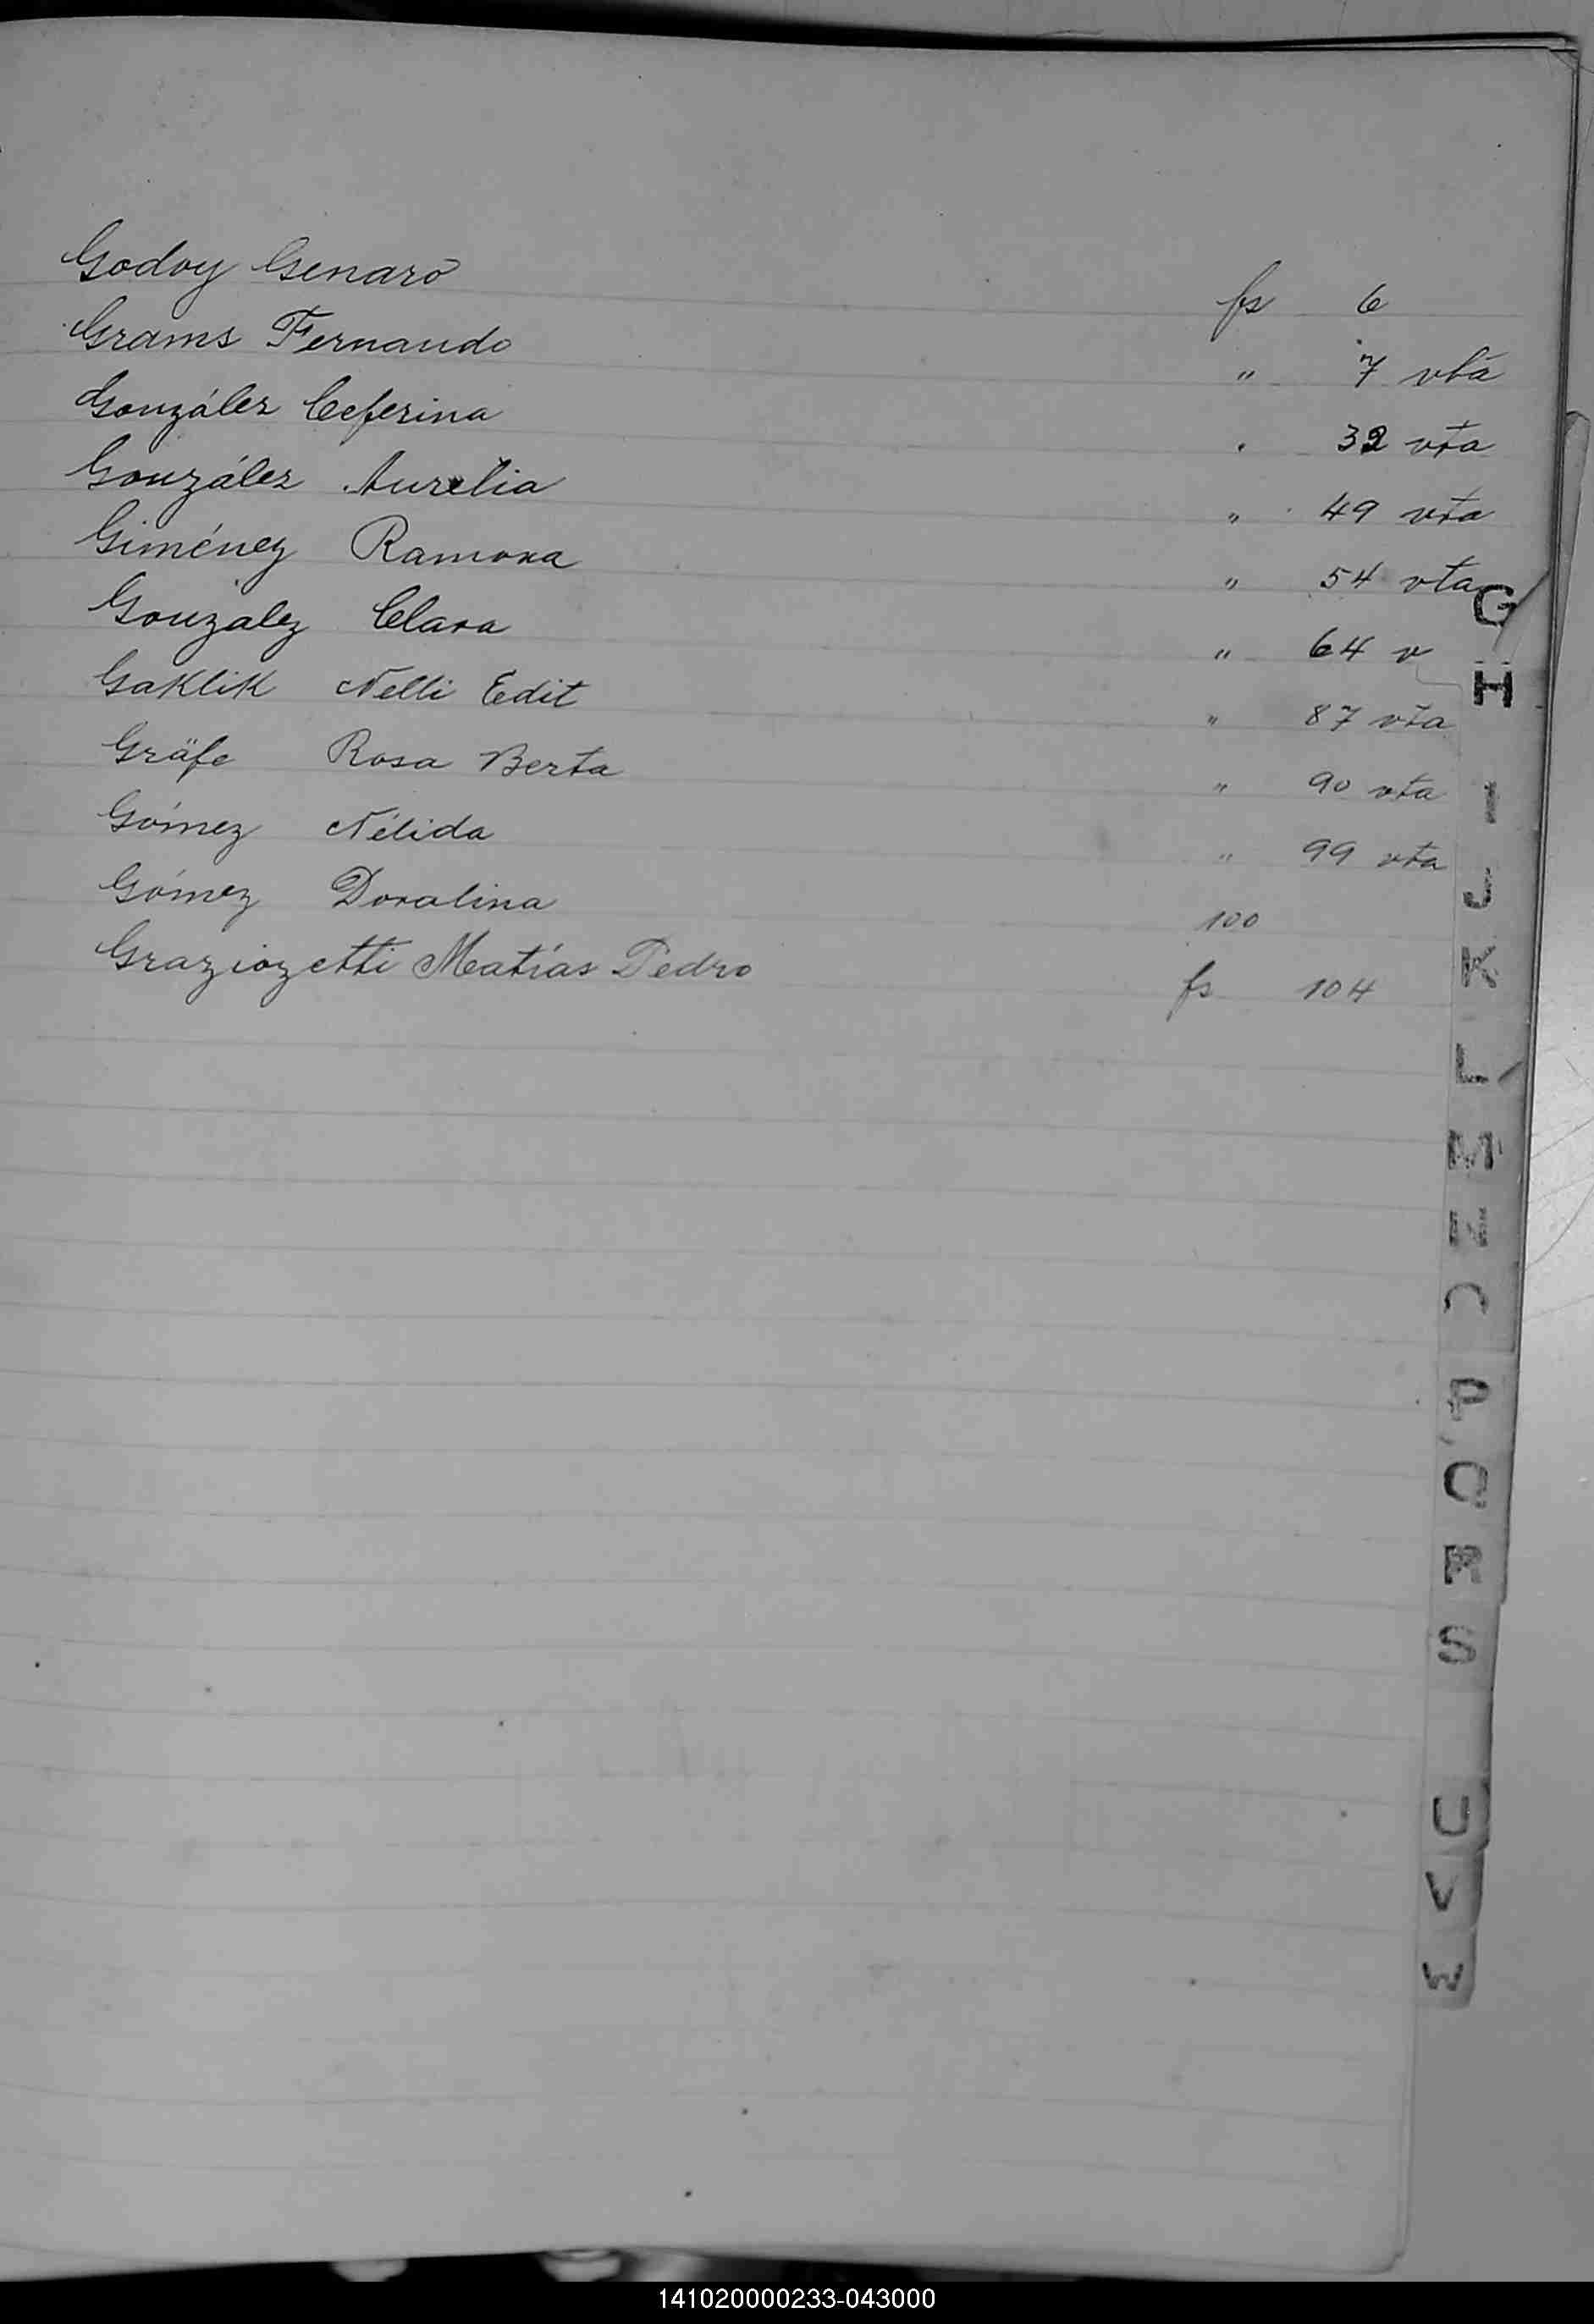 Godoy Genaro fs 6
Grams Fernando " 7 vta
González Ceferina " 32 vta
González Aurelia " 49 vta
Giménez Ramona " 54 vta
Gonzalez Clara " 64 v
Gaklik Nelli Edit " 87 vta
Gräfe Rosa Berta " 90 vta
Gómez Nélida " 99 vta
Gómez Doralina 100
Graziozetti Matías Pedro fs 104
G
H
I
J
K
L
M
N
O
P
Q
R
S
U
V
W
141020000233-043000